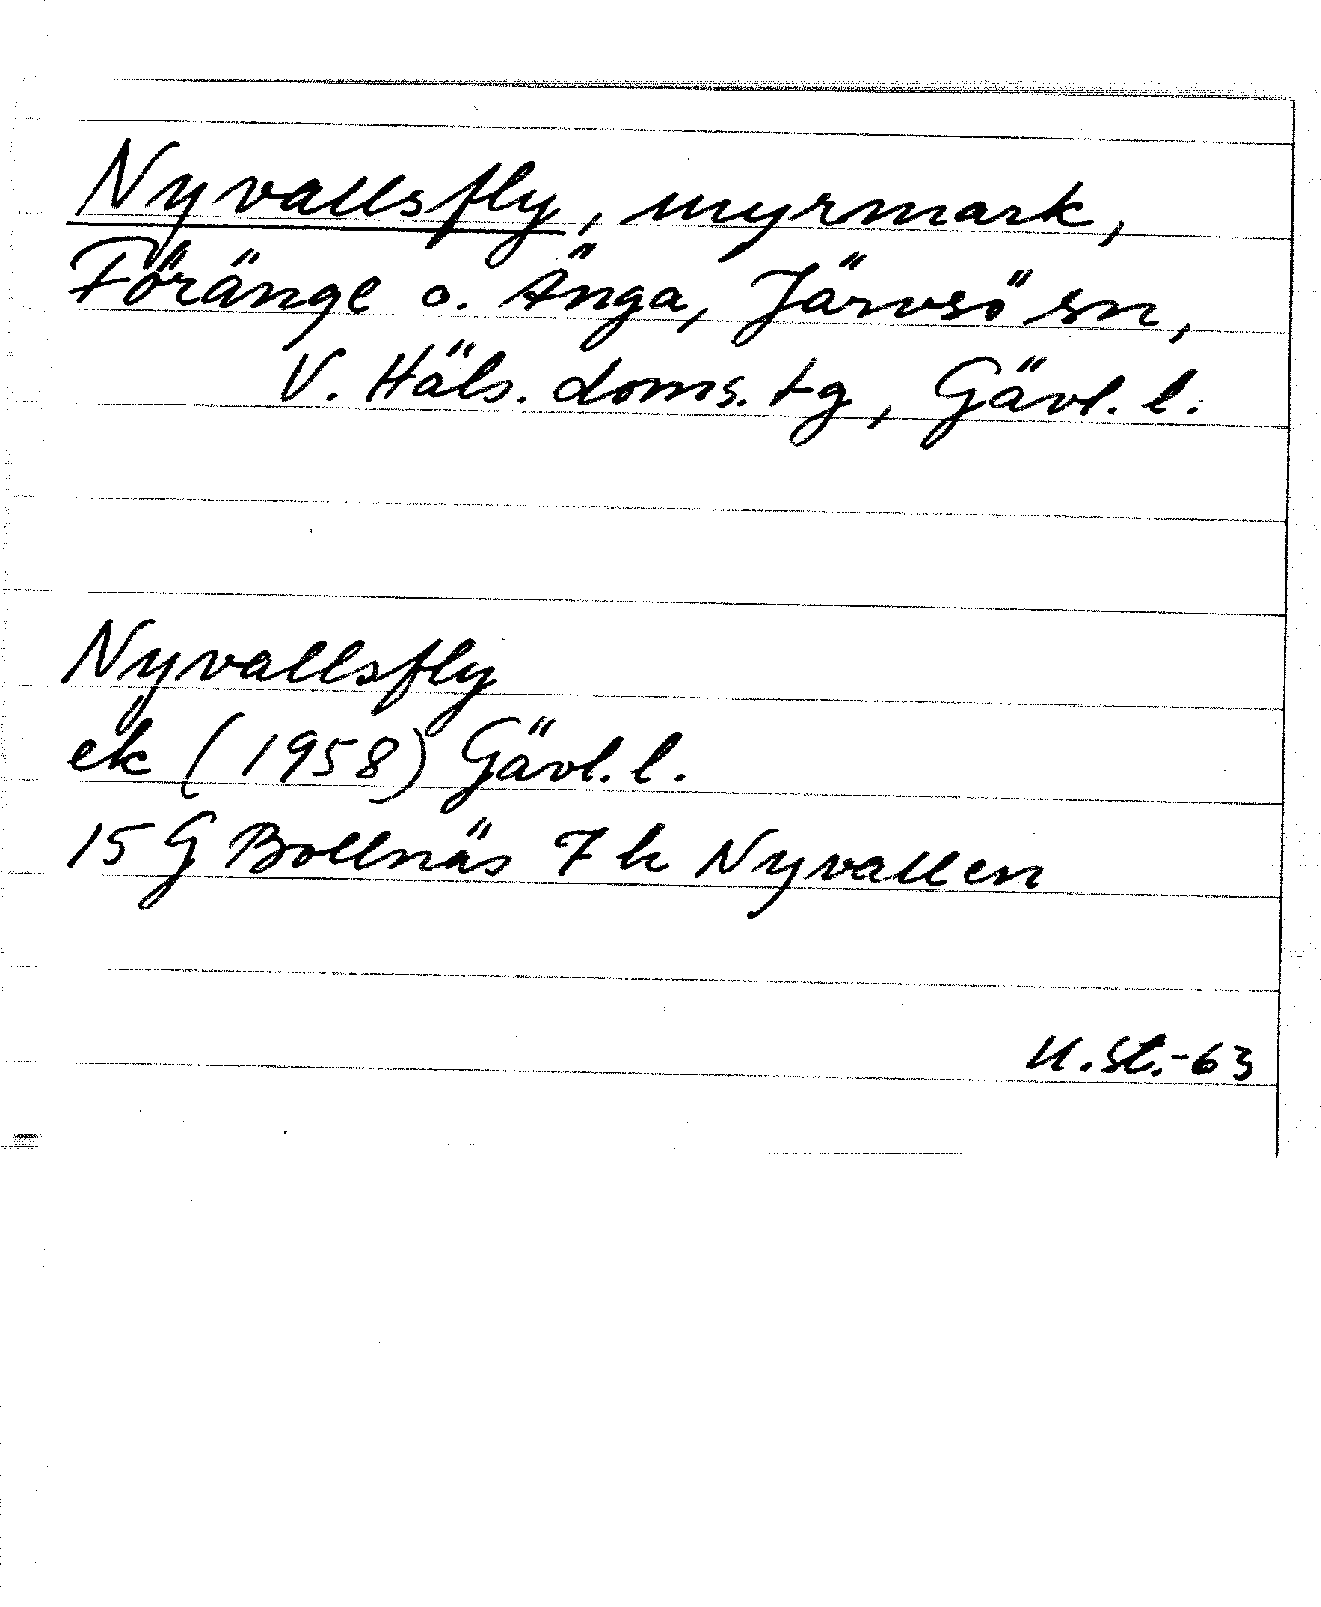 Nyvallsfly, myrmark,
Föränge o. Änga, Järvsö sn,
V. Häls. doms. tg, Gävl. l.
Nyvallsfly
ek (1958) Gävl. l.
15 G Bollnäs 7 h Nyvallen
U. St.-63